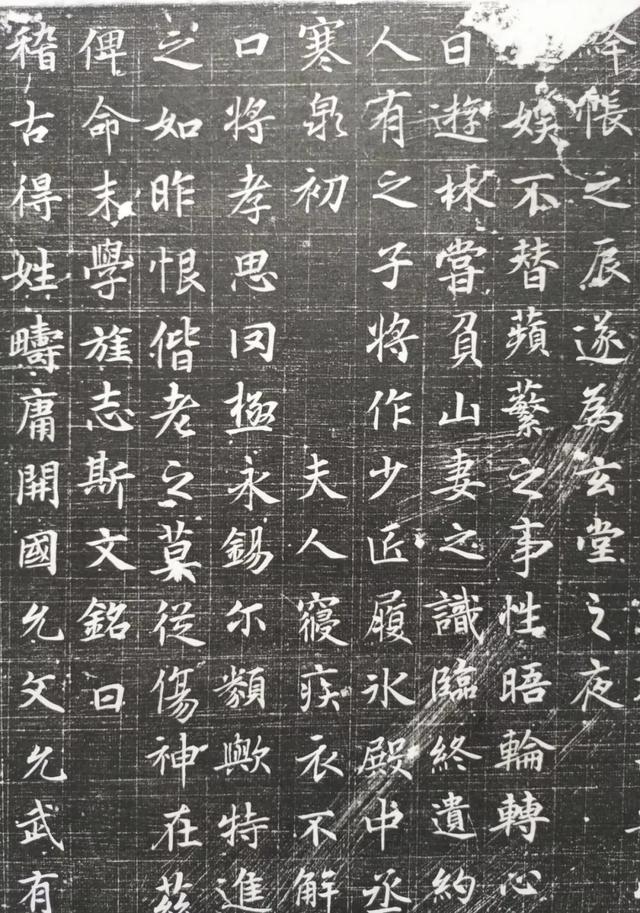 絳帳之辰遂為玄堂之夜
娛不替蘋蘩之事性晤輪轉心
日遊林嘗負山妻之識臨終遺約
人有之子將作少匠履冰殿中丞
寒泉初 夫人寢疾衣不解
口將孝思罔極永錫尔類歟特進
之如昨恨偕老之莫從傷神在茲
俾命末學旌志斯文銘曰
稽古得姓疇庸開國允文允武有